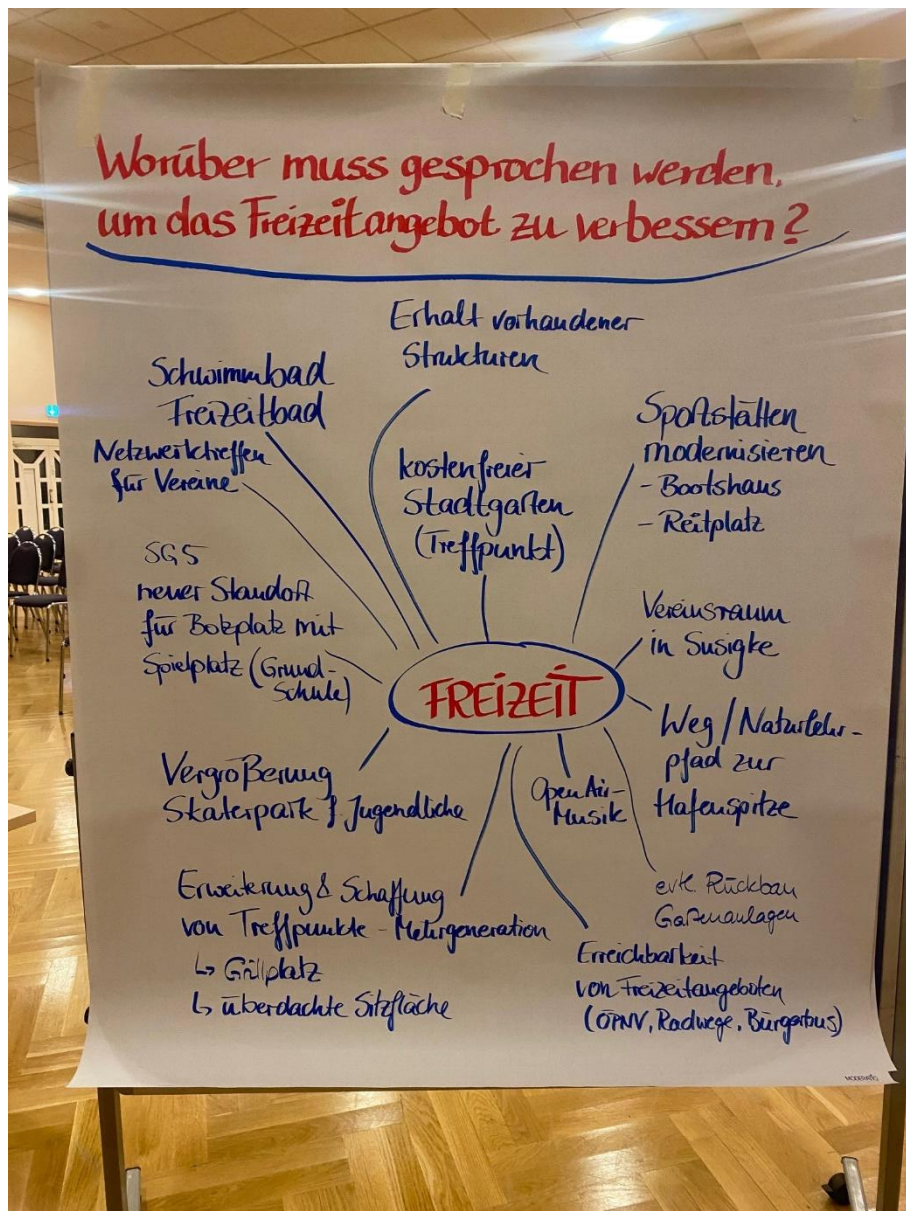 Worüber muss gesprochen werden,
um das Freizeitangebot zu verbessern?
Erhalt vorhandener
Strukturen
Schwimmbad
Freizeitbad
Netzwerktreffen
für Vereine
kostenfreier
Stadtgarten
(Treffpunkt)
Sportstätten
modernisieren
- Bootshaus
- Reitplatz
SGS
neuer Standort
für Bolzplatz mit
Spielplatz (Grund-
schule)
Vereinsraum
in Susigke
FREIZEIT
Weg/Naturlehr-
pfad zur
Hafenspitze
Vergrößerung
Skaterpark } Jugendliche
Open Air-
Musik
Erweiterung & Schaffung
von Treffpunkte - Mehrgeneration
↳ Grillplatz
↳ überdachte Sitzfläche
evtl. Rückbau
Gartenanlagen
Erreichbarkeit
von Freizeitangeboten
(ÖPNV, Radwege, Bürgerbus)